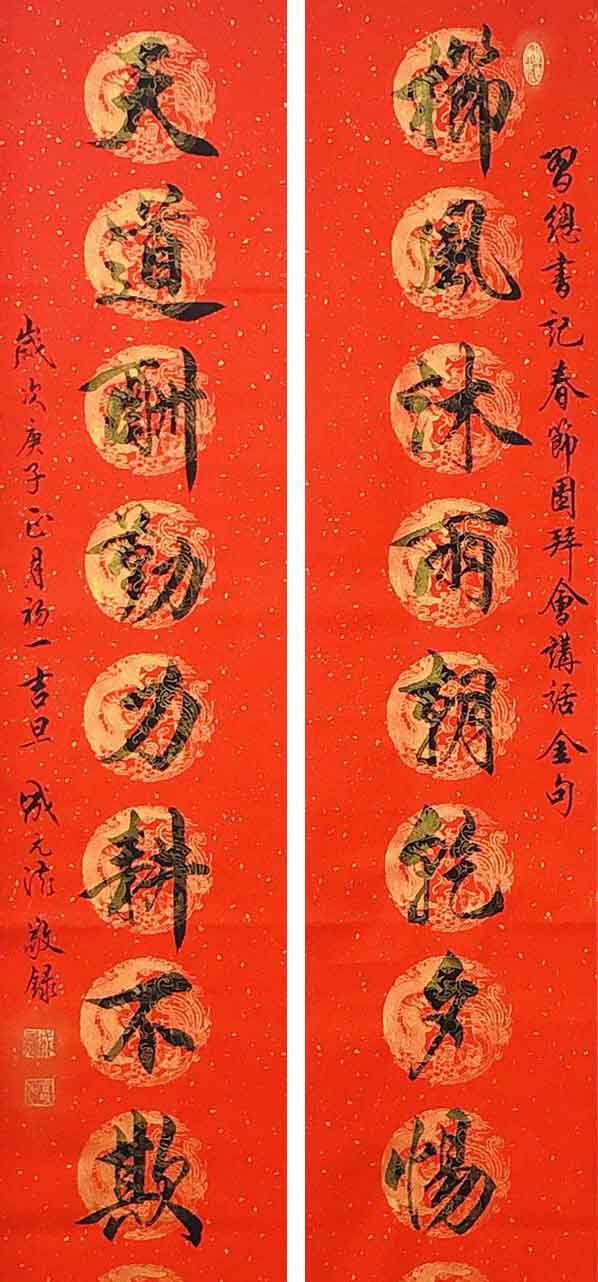 習總書記春節團拜會講話金句
櫛風沐雨朝乾夕惕
天道酬勤力耕不欺
歲次庚子正月初一吉旦 成元 敬錄